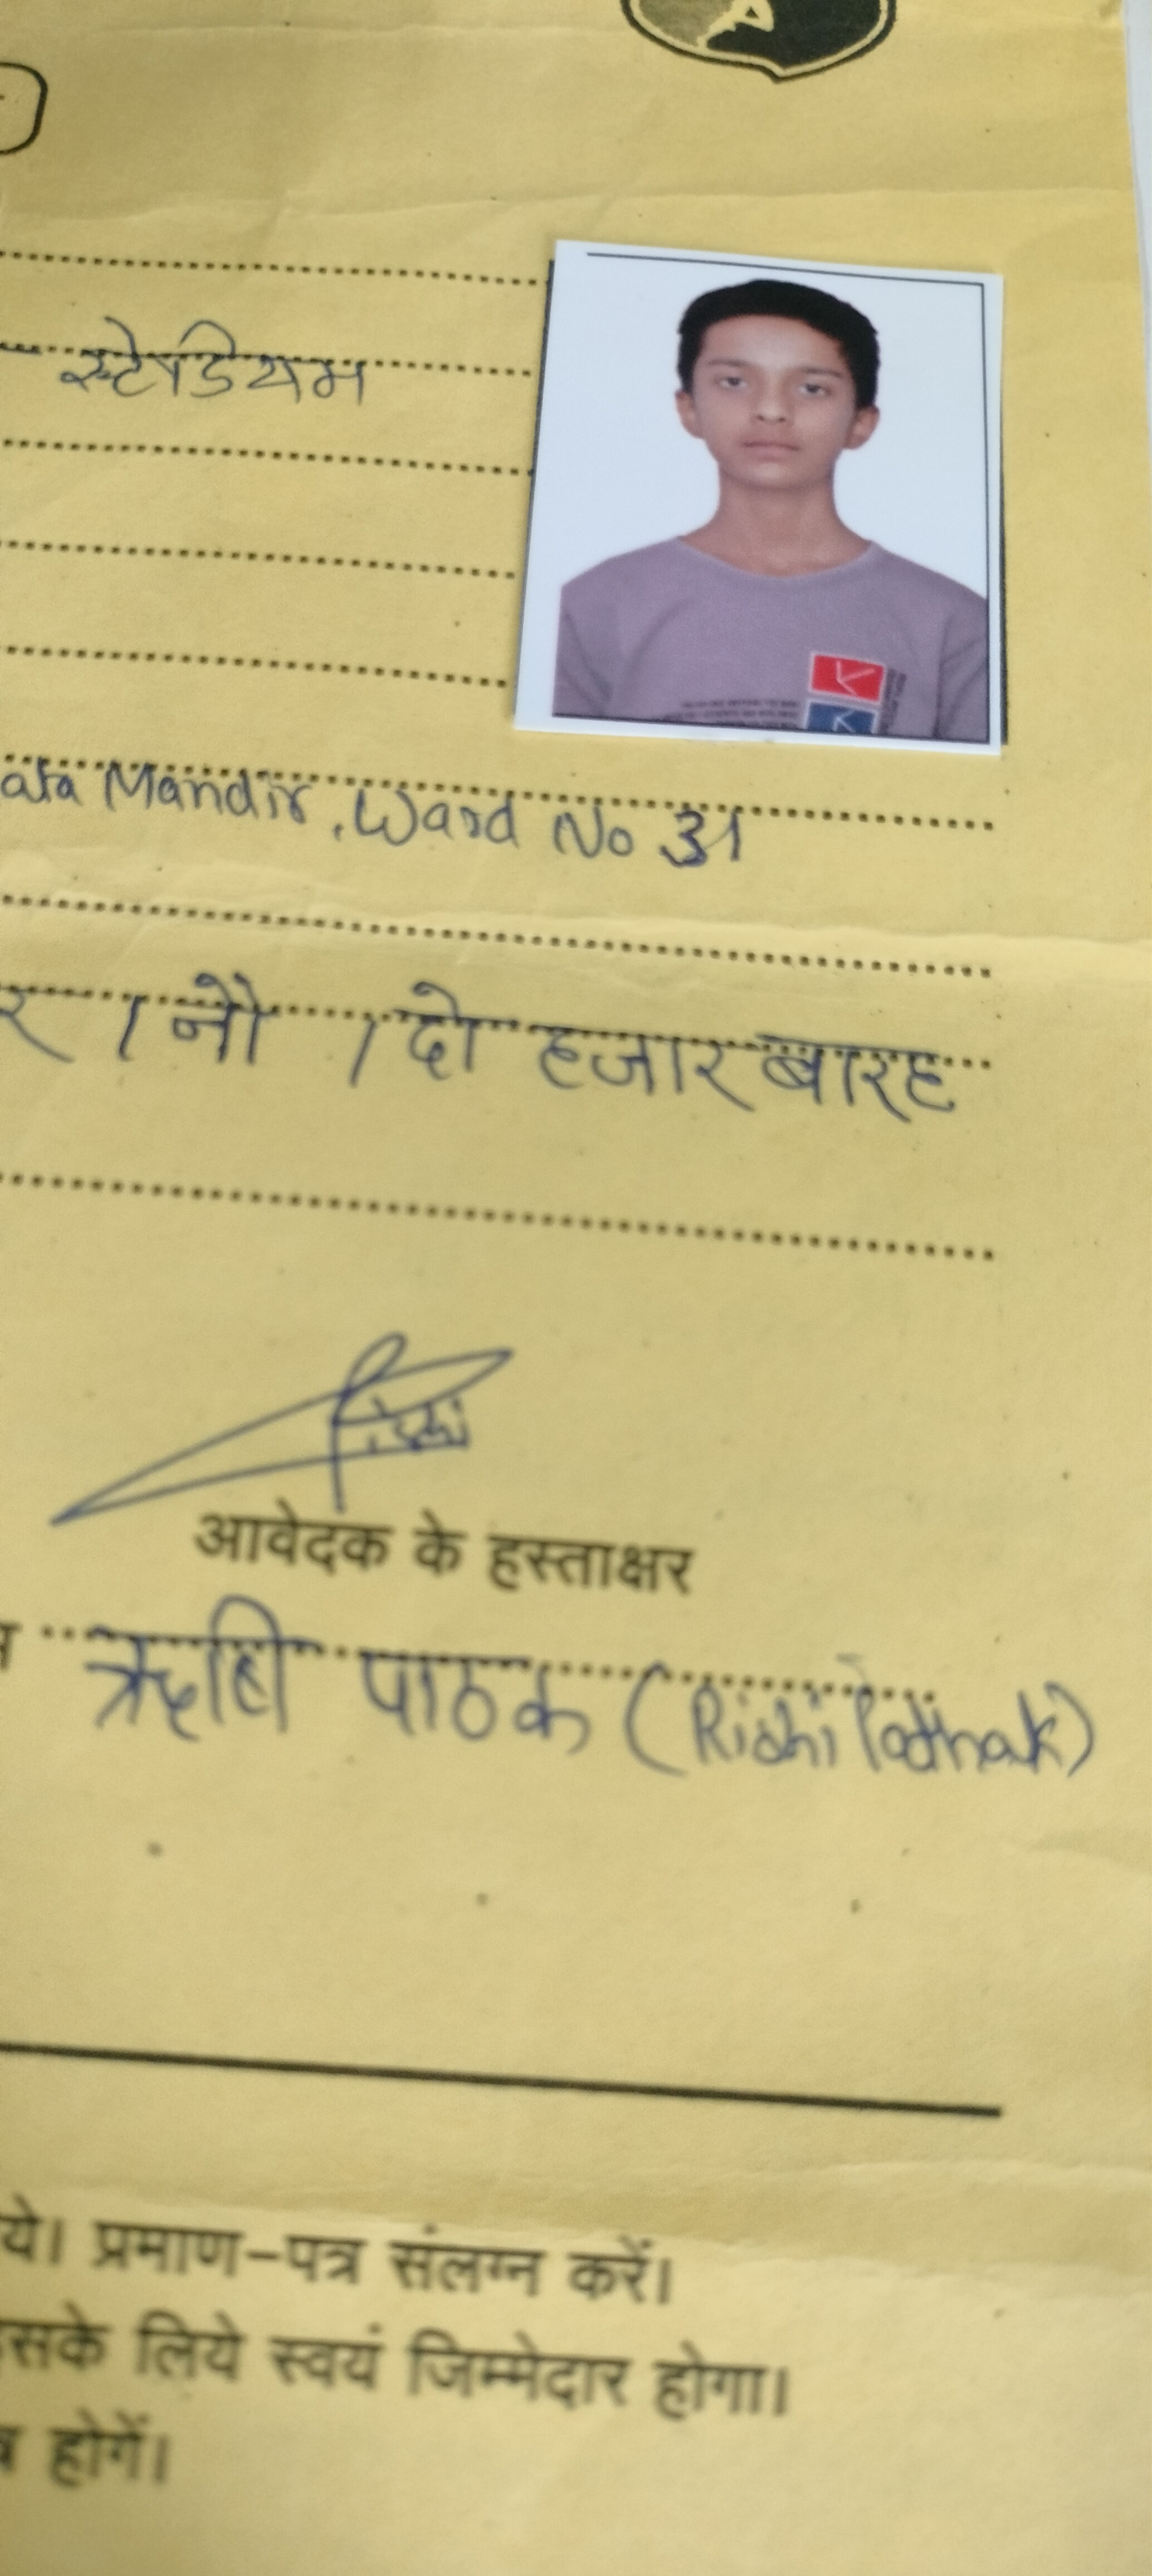 स्टेडियम
ata Mandir, Ward No 31
र / नौ / दो हजार बारह
Rishi
आवेदक के हस्ताक्षर
ऋषि पाठक (Rishi Pathak)
ये। प्रमाण-पत्र संलग्न करें।
सके लिये स्वयं जिम्मेदार होगा।
होगें।